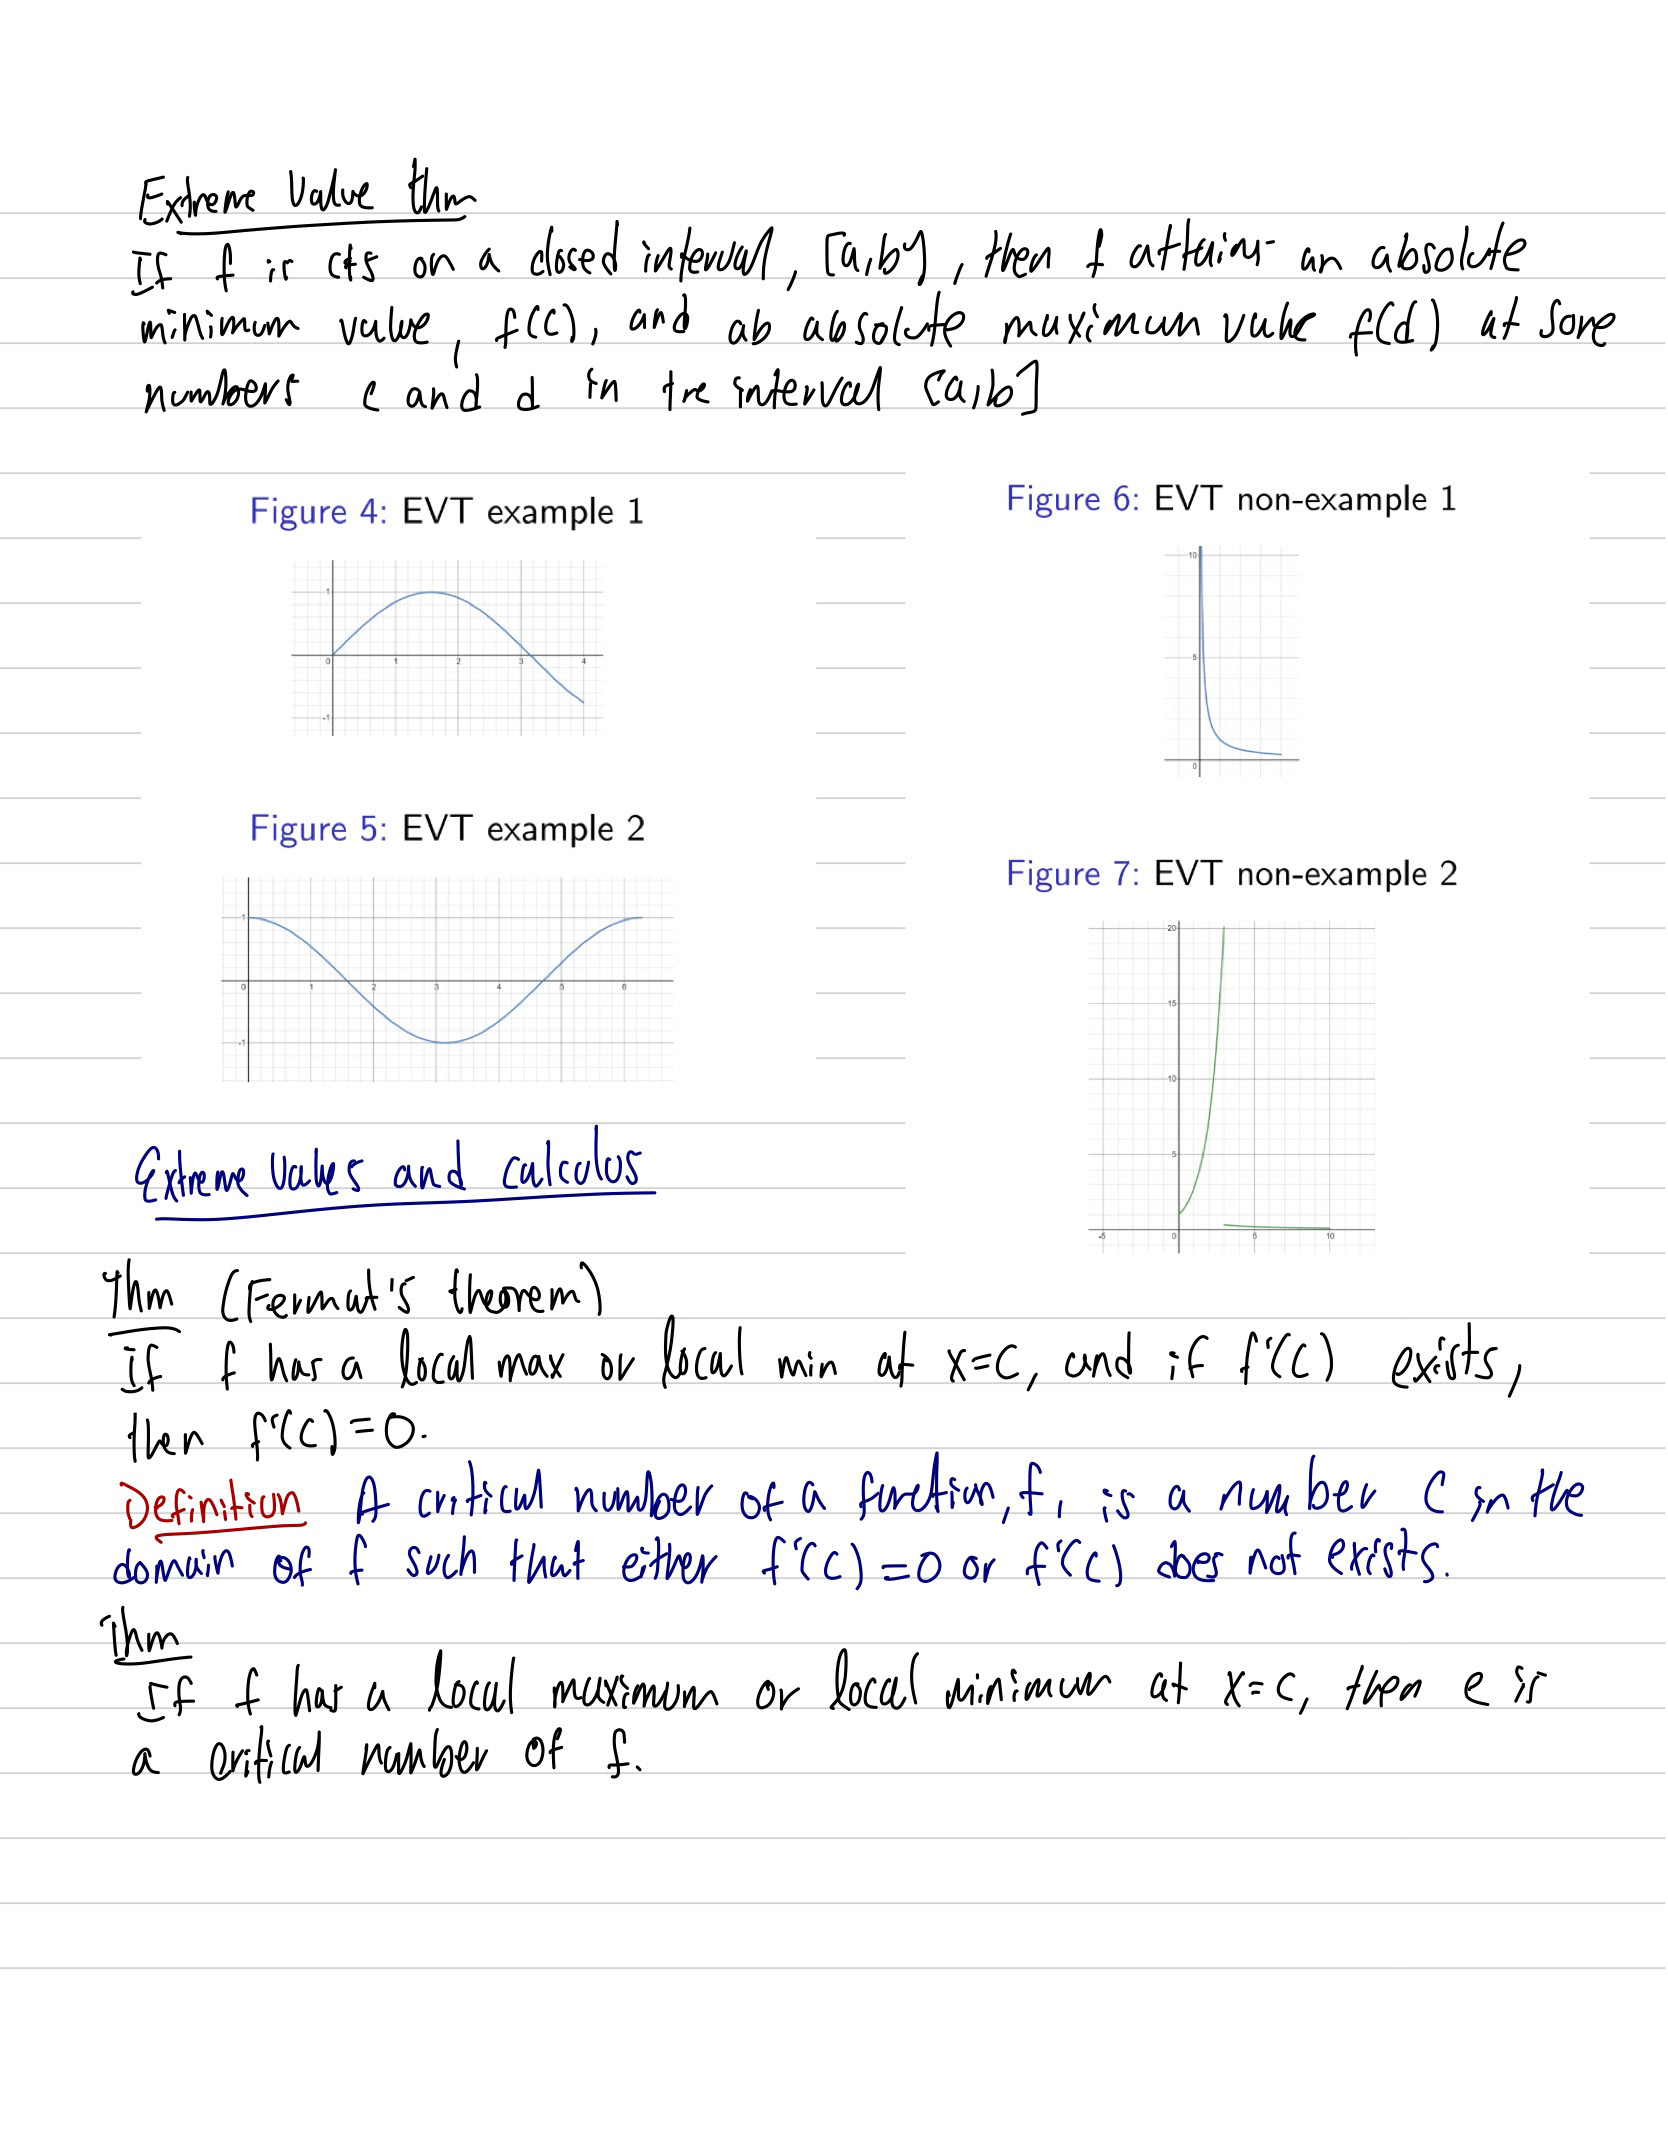 Extreme Value thm
If f is cts on a closed interval, [a,b], then f attains an absolute
minimum value, f(c), and ab absolute maximum value f(d) at some
numbers c and d in the interval [a,b]
Figure 4: EVT example 1
1
0 1 2 3 4
-1
Figure 5: EVT example 2
1
0 1 2 3 4 5 6
-1
Figure 6: EVT non-example 1
10
5
0
Figure 7: EVT non-example 2
20
15
10
5
-5 0 5 10
Extreme Values and calculus
Thm (Fermat's theorem)
If f has a local max or local min at x=c, and if f'(c) exists,
then f'(c)=0.
Definition A critical number of a function, f, is a number c in the
domain of f such that either f'(c)=0 or f'(c) does not exists.
Thm
If f has a local maximum or local minimum at x=c, then c is
a critical number of f.